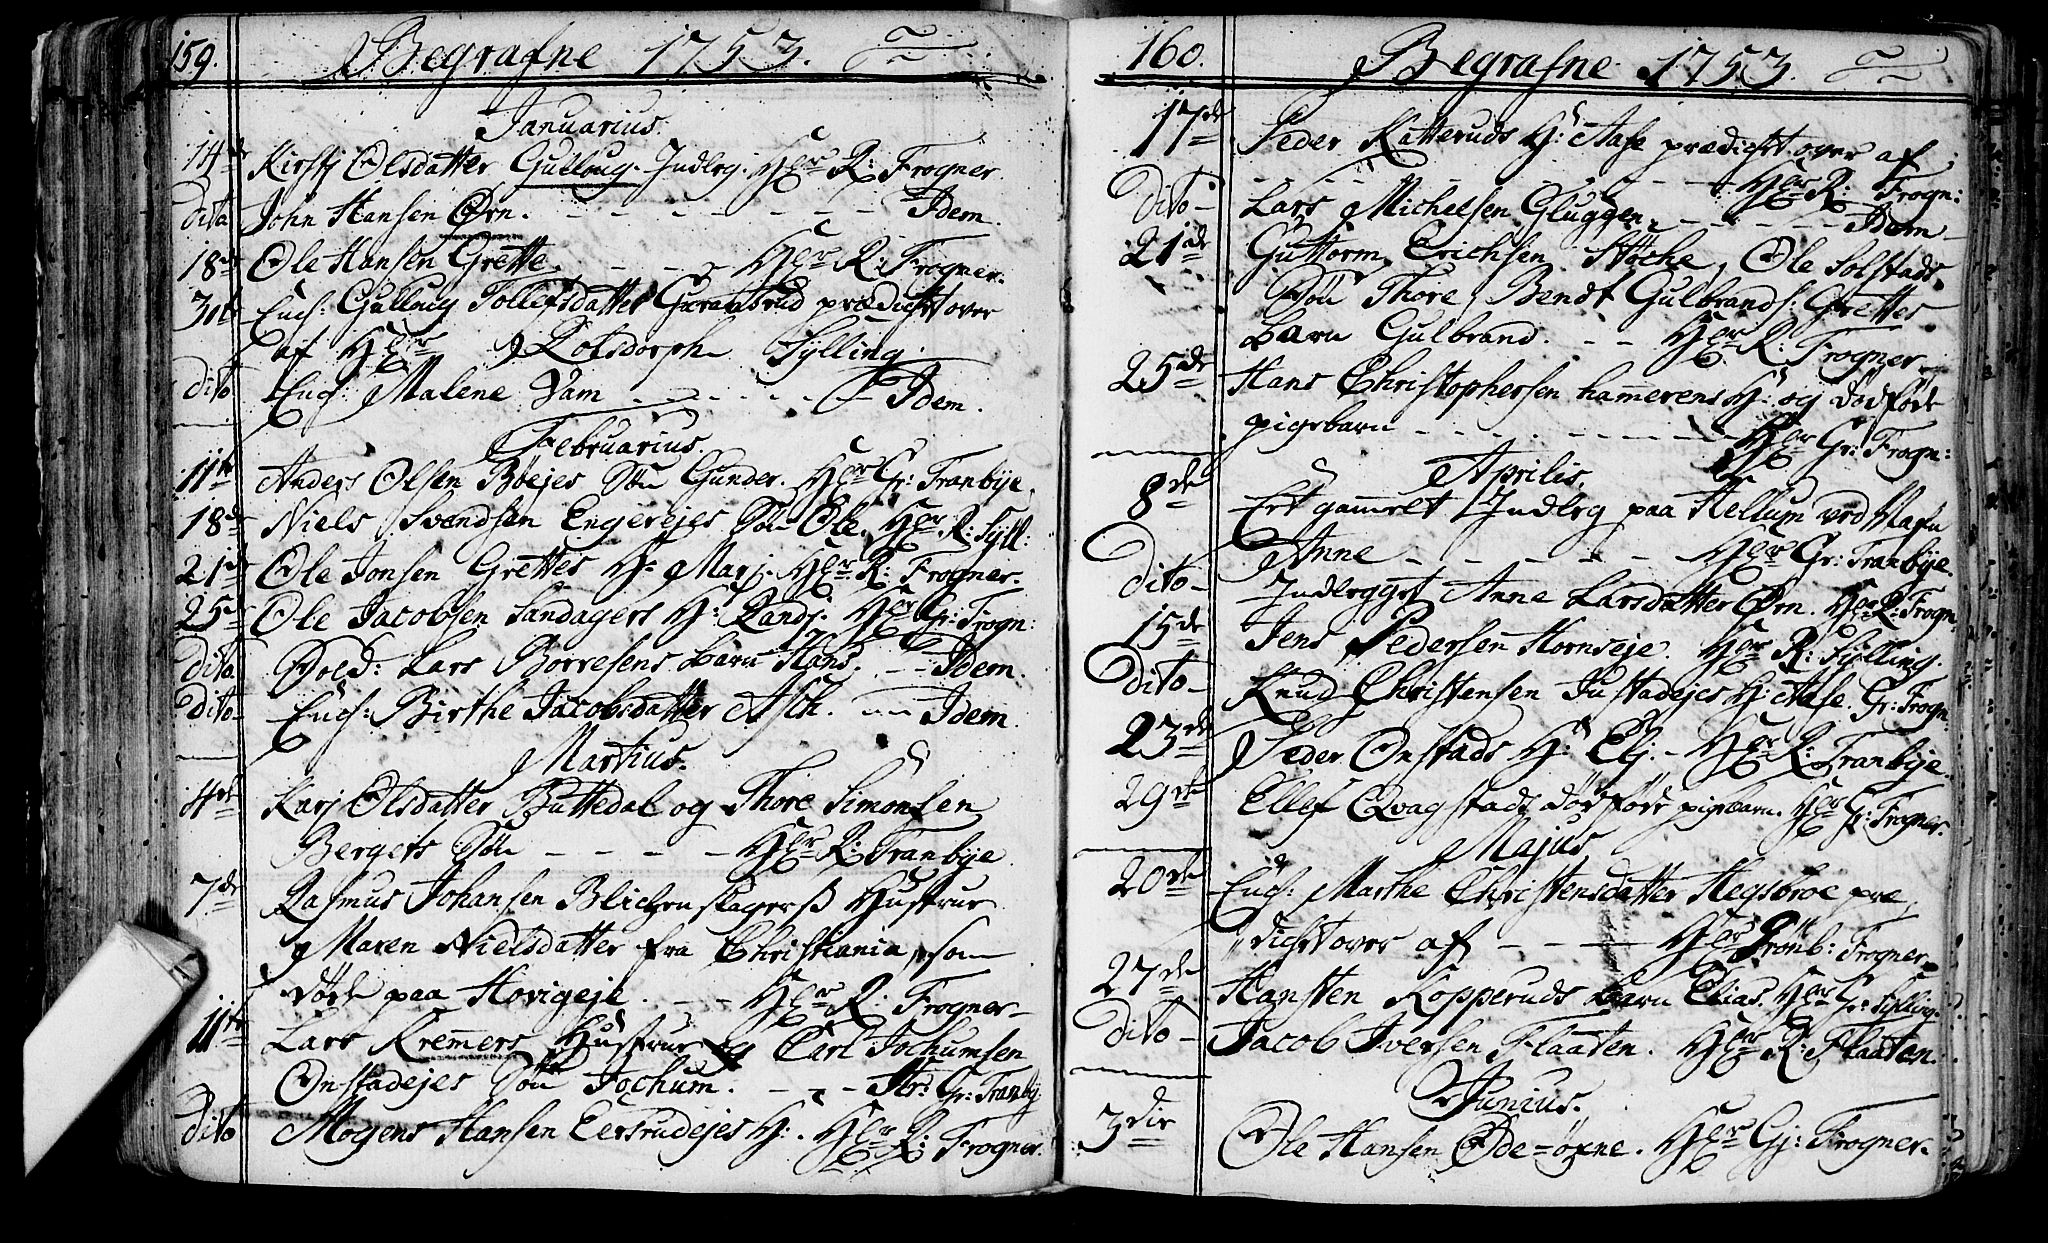 159. Begrafne 1753.
Januarius.
14de Kirstj Olsdatter Gulloug. Indleg. Her R: Frogner
dito John Hansen Ørn. - - - - - - - Idem.
18de Ole Hansen Grette. - - - Her R: Frogner.
30te Enck: Gulloug Tollefsdatter Gunnbrud prædicket over
af Her Rolsdorph Sylling.
dito Enck: Malene Vam - - - - - Idem.
Februarius.
11te Anders Olsen Bøejes Søn Gunder. Her Gr: Tranbye.
18de Niels Svendsen Engerejes Søn Ole. Her R: Syll:
21de Ole Jonsen Grettes H: Marj. Her R: Frogner.
25de Ole Jacobsen Sandagers H: Randj. Her Gr: Frogn:
Dito Sold: Lars Borresens barn Hans. - - Idem.
Dito Enck: Birthe Jacobsdatter Asch. - - Idem.
Martius.
4de Karj Olsdatter Buttedal og Thore Simonsen
Bergets Søn - - - - Her R: Tranbye
7de Rasmus Johansen Blichenslagers Hustrue
Maren Nielsdatter fra Christiania, som
døde paa Hovigeje. - - Her R: Frogner
11te Lars Kremmers Hustrue og Carl Jochumsen
Onstadejes Søn Jochum. - - - Hr: Gr: Tranbÿ.
Dito Mogens Hansen Eertrudejes H:. Her R: Frogner.
160. Begrafne 1753.
17de Peder Ratteruds H: Aase prædicket over af
- - - - - - - Her R: Frogn:
Dito Lars Michelsen Gluggen - - - - Idem
21de Guttorm Erichsen Støche, Ole Solstads
Søn Thore, Bendt Gulbrands: Grettes
barn Gulbrand. - - Her R: Frogner.
25de Hans Christophersen hammerens H: og dødføde
pigebarn - - - - - - Her Gr: Frogn:
Aprilis.
8de Et gammelt Indleg paa Hellum ved Nafn
Anne - - - - - Her Gr: Tranbye.
dito Indlegget Anne Larsdatter Ørn. Her R: Frogn.
15de Jens Pedersen Hornseje. Her R: Sylling.
Dito Knud Christensen Justadejes H: Aase. Gr: Frogn.
23de Peder Onstads H: Elj. - Her R: Tranbye.
29de Ellef Qvagstads dødføde pigebarn. Her Gr: Frogner.
Majus
20de Enck: Marthe Christensdatter Hegsbroe præ
dicket over af - - - Her Grönb: Frogner.
27de Hansten Kopperuds barn Elias. Her Gr: Sylling.
dito Jacob Iversen Flaaten. Her R: Flaaten.
Junius.
3die Ole Hansen Øde=ørne. Her Gj: Frogner.